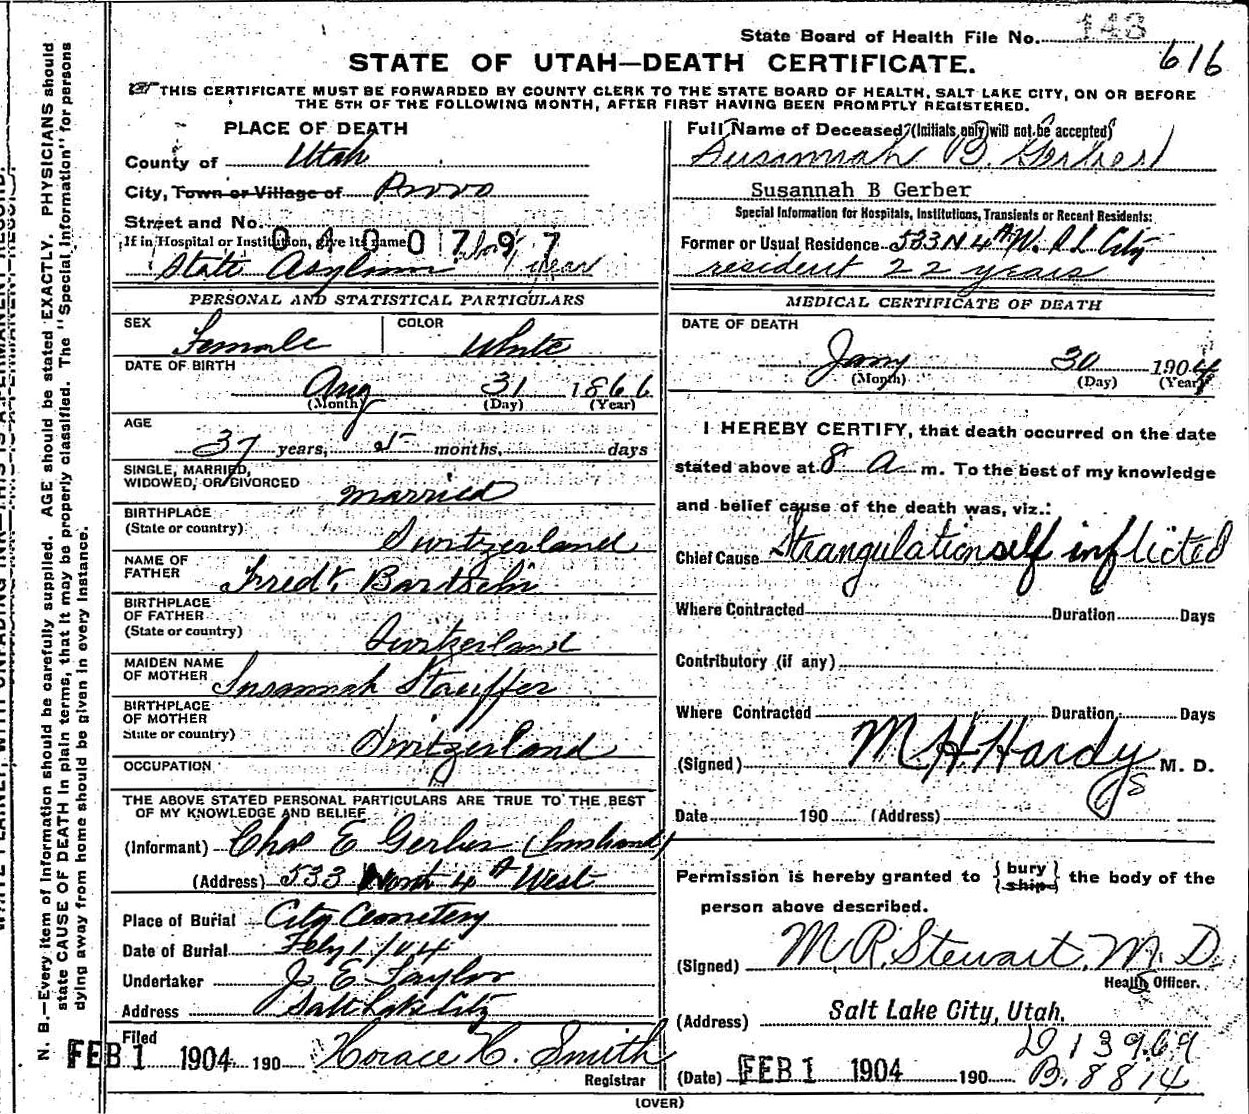 State Board of Health File No. 143
616
STATE OF UTAH—DEATH CERTIFICATE.
THIS CERTIFICATE MUST BE FORWARDED BY COUNTY CLERK TO THE STATE BOARD OF HEALTH, SALT LAKE CITY, ON OR BEFORE
THE 5TH OF THE FOLLOWING MONTH, AFTER FIRST HAVING BEEN PROMPTLY REGISTERED.
PLACE OF DEATH
County of Utah
City, Town or Village of Provo
Street and No.
If in Hospital or Institution, give its name
0400797
State Asylum abt 1 year
PERSONAL AND STATISTICAL PARTICULARS
SEX Female COLOR White
DATE OF BIRTH
Aug 31 1866
(Month) (Day) (Year)
AGE
37 years, 5 months, days
SINGLE, MARRIED,
WIDOWED, OR DIVORCED married
BIRTHPLACE
(State or country) Switzerland
NAME OF
FATHER Fredk Bartschi
BIRTHPLACE
OF FATHER
(State or country) Switzerland
MAIDEN NAME
OF MOTHER Susannah Stauffer
BIRTHPLACE
OF MOTHER
State or country) Switzerland
OCCUPATION
THE ABOVE STATED PERSONAL PARTICULARS ARE TRUE TO THE BEST
OF MY KNOWLEDGE AND BELIEF
(Informant) Chas E Gerber (husband)
(Address) 533 North 4th West
Place of Burial City Cemetery
Date of Burial Feby 1/04
Undertaker J. E. Taylor
Address Salt Lake City
Filed
FEB 1 1904 190 Horace H. Smith
Registrar
Full Name of Deceased (Initials only will not be accepted)
Susannah B. Gerber
Susannah B Gerber
Special Information for Hospitals, Institutions, Transients or Recent Residents:
Former or Usual Residence 533 N 4th W. S L City
resident 22 years
MEDICAL CERTIFICATE OF DEATH
DATE OF DEATH
Jany 30 1904
(Month) (Day) (Year)
I HEREBY CERTIFY, that death occurred on the date
stated above at 8 a m. To the best of my knowledge
and belief cause of the death was, viz.:
Chief Cause Strangulation self inflicted
Where Contracted Duration Days
Contributory (if any)
Where Contracted Duration Days
(Signed) M H Hardy M. D.
Date 190 (Address)
Permission is hereby granted to { bury ship } the body of the
person above described.
(Signed) M R. Stewart, M. D.
Health Officer.
(Address) Salt Lake City, Utah.
D 13969
(Date) FEB 1 1904 190 B. 8814
(OVER)
N. B.—Every item of information should be carefully supplied. AGE should be stated EXACTLY. PHYSICIANS should
state CAUSE OF DEATH in plain terms, that it may be properly classified. The "Special Information" for persons
dying away from home should be given in every instance.